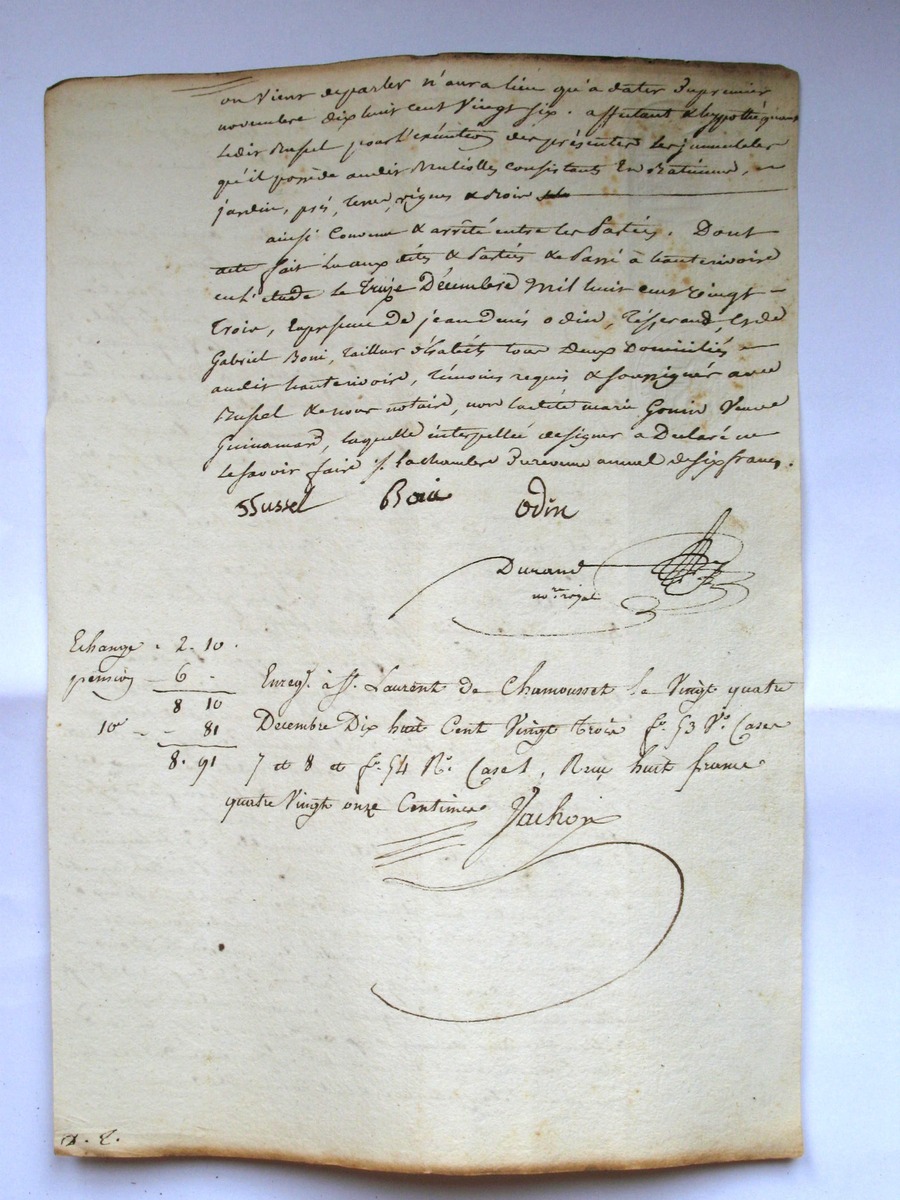 on vient de parler n'aura lieu qu'à dater du premier
novembre dix huit cent vingt six. affectant & hypothéquant
ledit Russel pour l'exécution des présentes les immeubles
qu'il possède audit consistants en Batiment,
jardin, prés, terres, vignes & bois
ainsi convenu & arrêté entre les Parties. Dont
acte fait lu aux dites Parties & Passé à hauterivoire
en l'étude le treize Décembre Mil huit cent vingt
trois, En présence de jean Denis odin, Tisserand, & de
Gabriel Boni, tailleur d'habits tous deux Domiciliés
audit hauterivoire, témoins requis & soussignés avec
Russel & nous notaire, non ladite marie Gonin Veuve
Guinamard, laquelle interpellée de signer a Déclaré ne
le savoir faire ./. la chambre du revenu annuel de six francs.
Russel Boni odin
Durand
no.re royal
Echange . 2. 10.
pension - 6 .
8 10
10e - - 81
8. 91
Enreg. à St. Laurent de Chamousset le Vingt quatre
Decembre Dix huit Cent Vingt trois fo. 53 Vo. Cases
7 et 8 et fo. 54 Ro. Case 1, Reçu huit francs
quatre Vingt onze Centimes Vachon